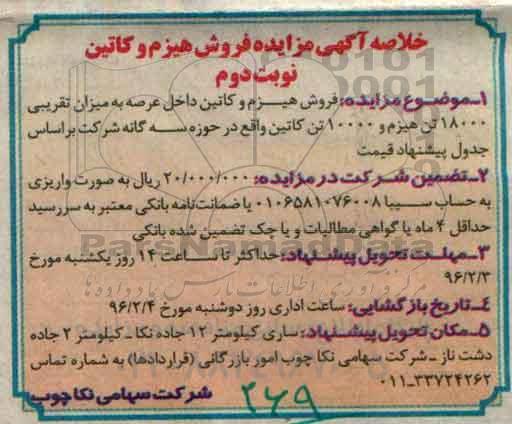 خلاصه آگهی مزایده فروش هیزم و کاتین
نوبت دوم
۱ـ موضوع مزایده: فروش هیـزم و کاتین داخل عرصه به میزان تقریبی
۱۸۰۰۰ تن هیزم و ۱۰۰۰۰ تن کاتین واقع در حوزه سـه گانه شرکت بر اساس
جدول پیشنهاد قیمت
۲ـ تضمین شـرکت در مزایده: ۲۰/۰۰۰/۰۰۰ ریال به صورت واریزی
به حساب سـیبا ۰۱۰۶۵۸۱۰۷۶۰۰۸ یا ضمانت‌نامه بانکی معتبر به سررسید
حداقل ۴ ماه یا گواهی مطالبات و یا چک تضمین شده بانکی
۳ـ مهلت تحویل پیشـنهاد: حداکثر تا سـاعت ۱۴ روز یکشنبه مورخ
۹۶/۲/۳
۴ـ تاریخ بازگشایی: ساعت اداری روز دوشنبه مورخ ۹۶/۲/۴
۵ـ مکان تحویل پیشـنهاد: ساری کیلومتر ۱۲ جاده نکا ـ کیلومتر ۲ جاده
دشت ناز ـ شرکت سهامی نکا چوب امور بازرگانی (قراردادها) به شماره تماس
۰۱۱-۳۳۷۲۴۲۶۲
شرکت سهامی نکاچوب
۲۶۹
ParsNamadData
مرکز فرآوری اطلاعات پارس نماد داده‌ها